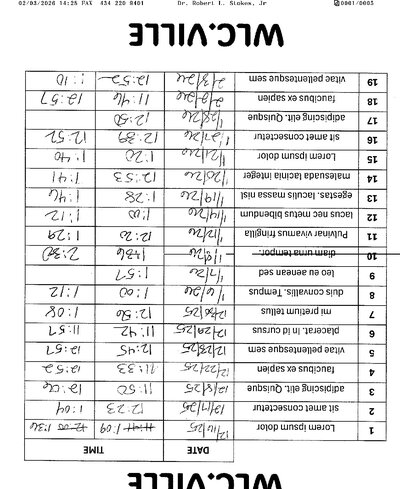 02/03/2026 14:25 FAX 434 220 9401 Dr. Robert L. Stokes, Jr 0001/0005
WLC.VILLE
DATE TIME
1 Lorem ipsum dolor 12/16/25 11:41 1:09 12:00 1:36
2 sit amet consectetur 12/17/25 12:23 1:04
3 adipiscing elit. Quisque 12/18/25 11:50 12:06
4 faucibus ex sapien 12/22/25 11:33 12:52
5 vitae pellentesque sem 12/23/25 12:45 12:57
6 placerat. In id cursus 12/29/25 11:42 11:57
7 mi pretium tellus 12/30/25 12:50 1:08
8 duis convallis. Tempus 1/6/26 1:00 1:12
9 leo eu aenean sed 1/7/26 1:57
10 diam urna tempor. 1/8/26 1:36 2:30
11 Pulvinar vivamus fringilla 1/12/26 12:20 1:29
12 lacus nec metus bibendum 1/14/26 1:00 1:12
13 egestas. Iaculis massa nisl 1/19/26 1:28 1:46
14 malesuada lacinia integer 1/20/26 12:53 1:41
15 Lorem ipsum dolor 1/21/26 1:20 1:40
16 sit amet consectetur 1/27/26 12:39 12:52
17 adipiscing elit. Quisque 1/28/26 12:50
18 faucibus ex sapien 2/2/26 11:46 12:57
19 vitae pellentesque sem 2/3/26 12:52 1:10
WLC.VILLE